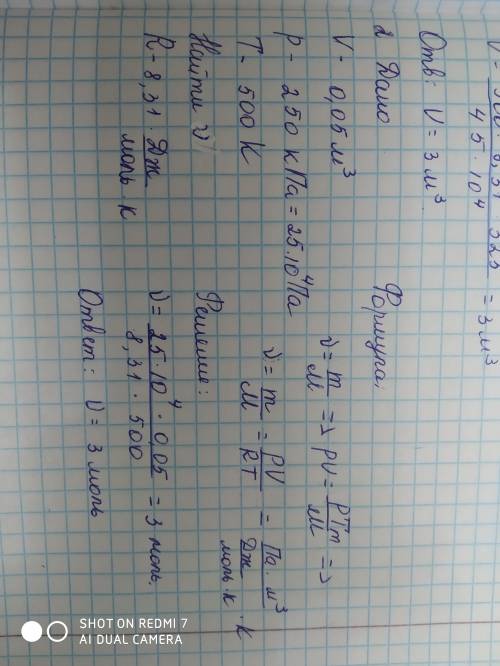 45 · 10⁴ = 3 м³
Отв: V = 3 м³
2 Дано
V - 0,05 м³
P - 250 кПа = 25·10⁴ Па
T - 500 K
Найти ν
R - 8,31 · Дж / моль к
Формула:
ν = m/M => PV = PTm/M =>
ν = m/M = PV/RT = Па · м³ / Дж/моль·к · к
Решение:
ν = 25·10⁴ · 0,05 / 8,31 · 500 = 3 моль.
Ответ: ν = 3 моль
SHOT ON REDMI 7
AI DUAL CAMERA